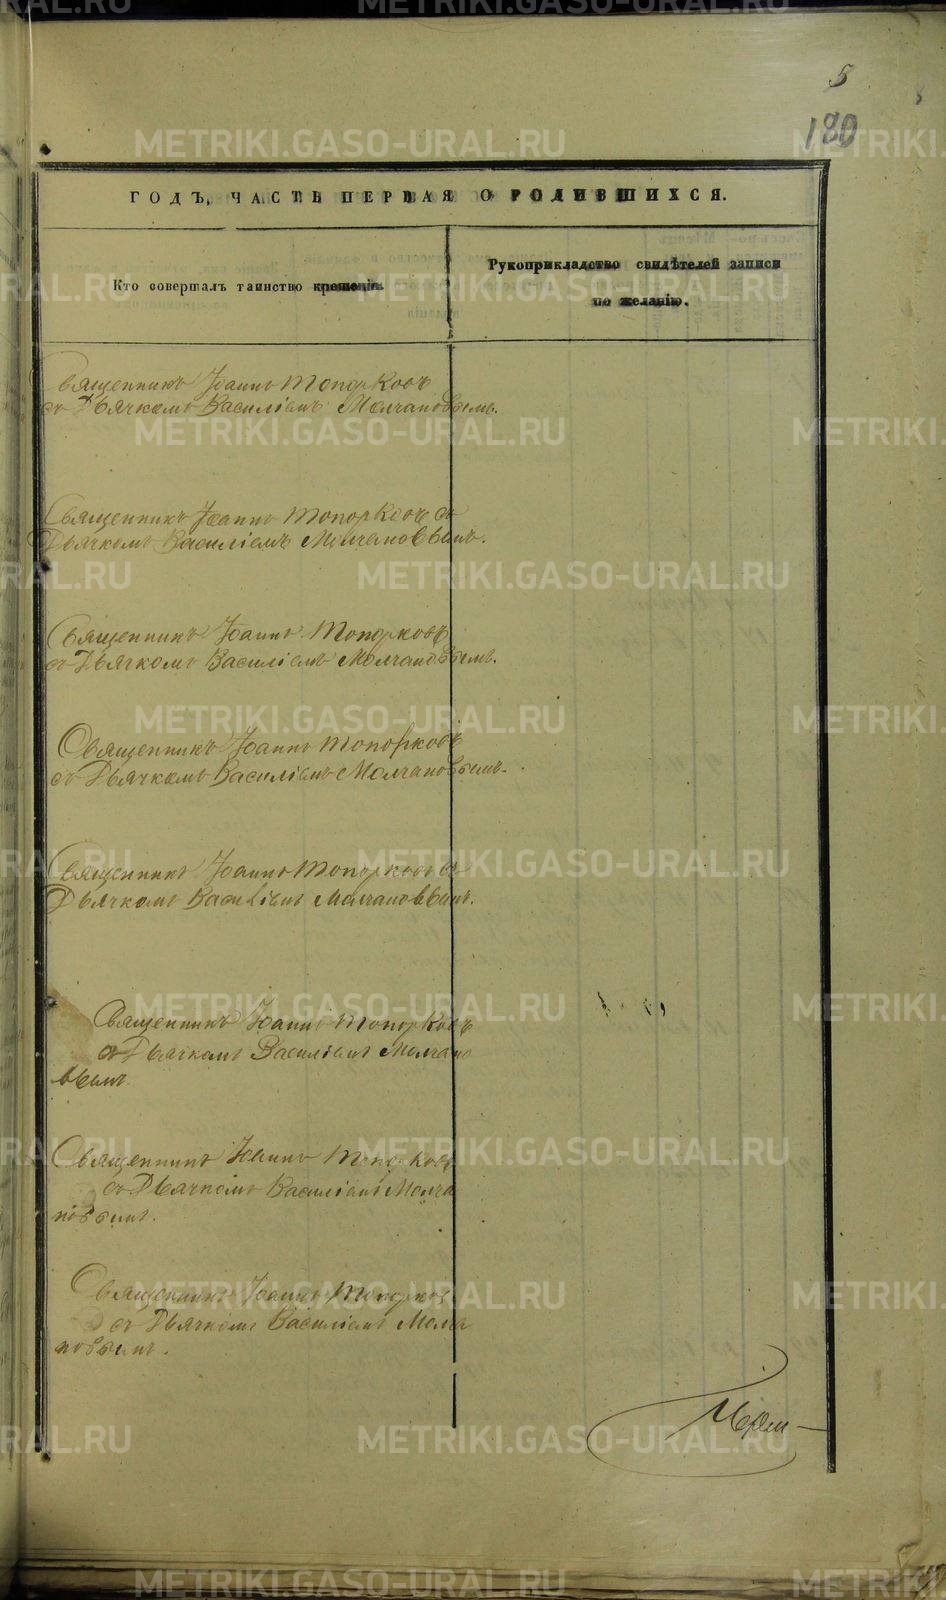 5
180
ГОДЪ, ЧАСТЬ ПЕРВАЯ О РОДИВШИХСЯ.
Кто совершалъ таинство крещенія.
Рукоприкладство свидѣтелей записи
по желанію.
Священникъ Іоаннъ Топорковъ
съ Дьячкомъ Василіемъ Молчановымъ.
Священникъ Іоаннъ Топорковъ съ
Дьячкомъ Василіемъ Молчановымъ.
Священникъ Іоаннъ Топорковъ
съ Дьячкомъ Василіемъ Молчановымъ.
Священникъ Іоаннъ Топорковъ
съ Дьячкомъ Василіемъ Молчановымъ.
Священникъ Іоаннъ Топорковъ съ
Дьячкомъ Василіемъ Молчановымъ.
Священникъ Іоаннъ Топорковъ
съ Дьячкомъ Василіемъ Молчано
вымъ.
Священникъ Іоаннъ Топорковъ
съ Дьячкомъ Василіемъ Молча
новымъ.
Священникъ Іоаннъ Топорков
съ Дьячкомъ Василіемъ Молча
новымъ.
METRIKI.GASO-URAL.RU